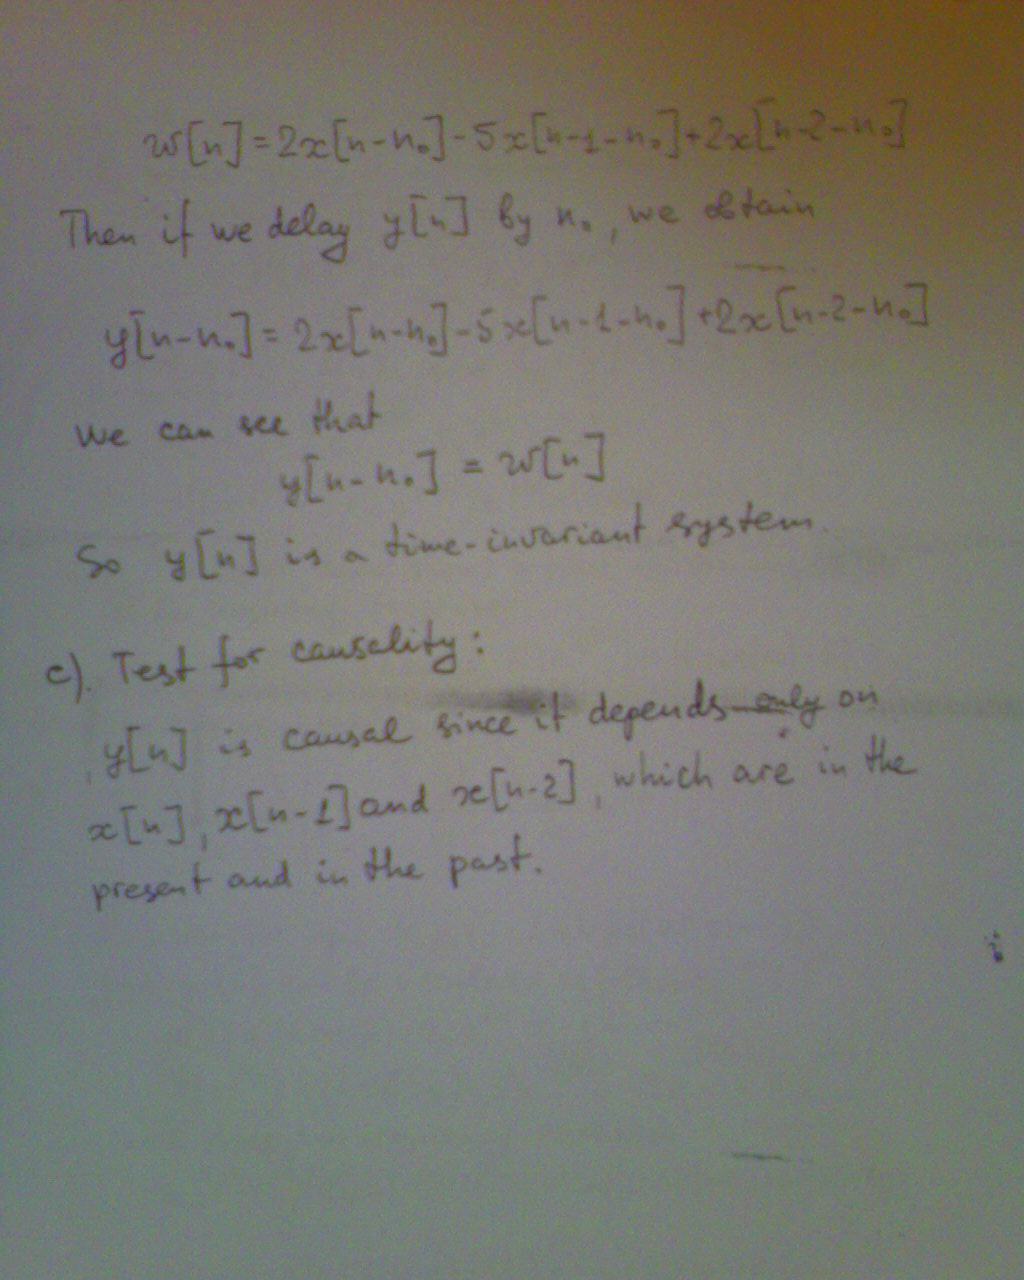 w[n] = 2x[n-n₀] - 5x[n-1-n₀] + 2x[n-2-n₀]
Then if we delay y[n] by n₀, we obtain
y[n-n₀] = 2x[n-n₀] - 5x[n-1-n₀] + 2x[n-2-n₀]
We can see that
y[n-n₀] = w[n]
So y[n] is a time-invariant system.
c). Test for causality:
y[n] is causal since it depends only on
x[n], x[n-1] and x[n-2], which are in the
present and in the past.